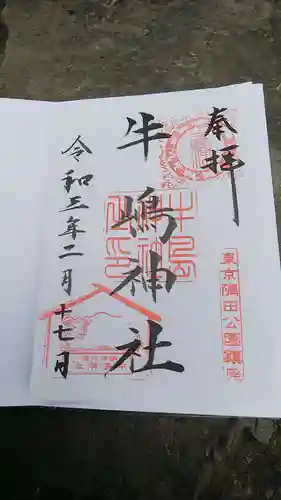 奉拝
東京隅田公園鎮座
牛嶋神社
令和三年二月十七日